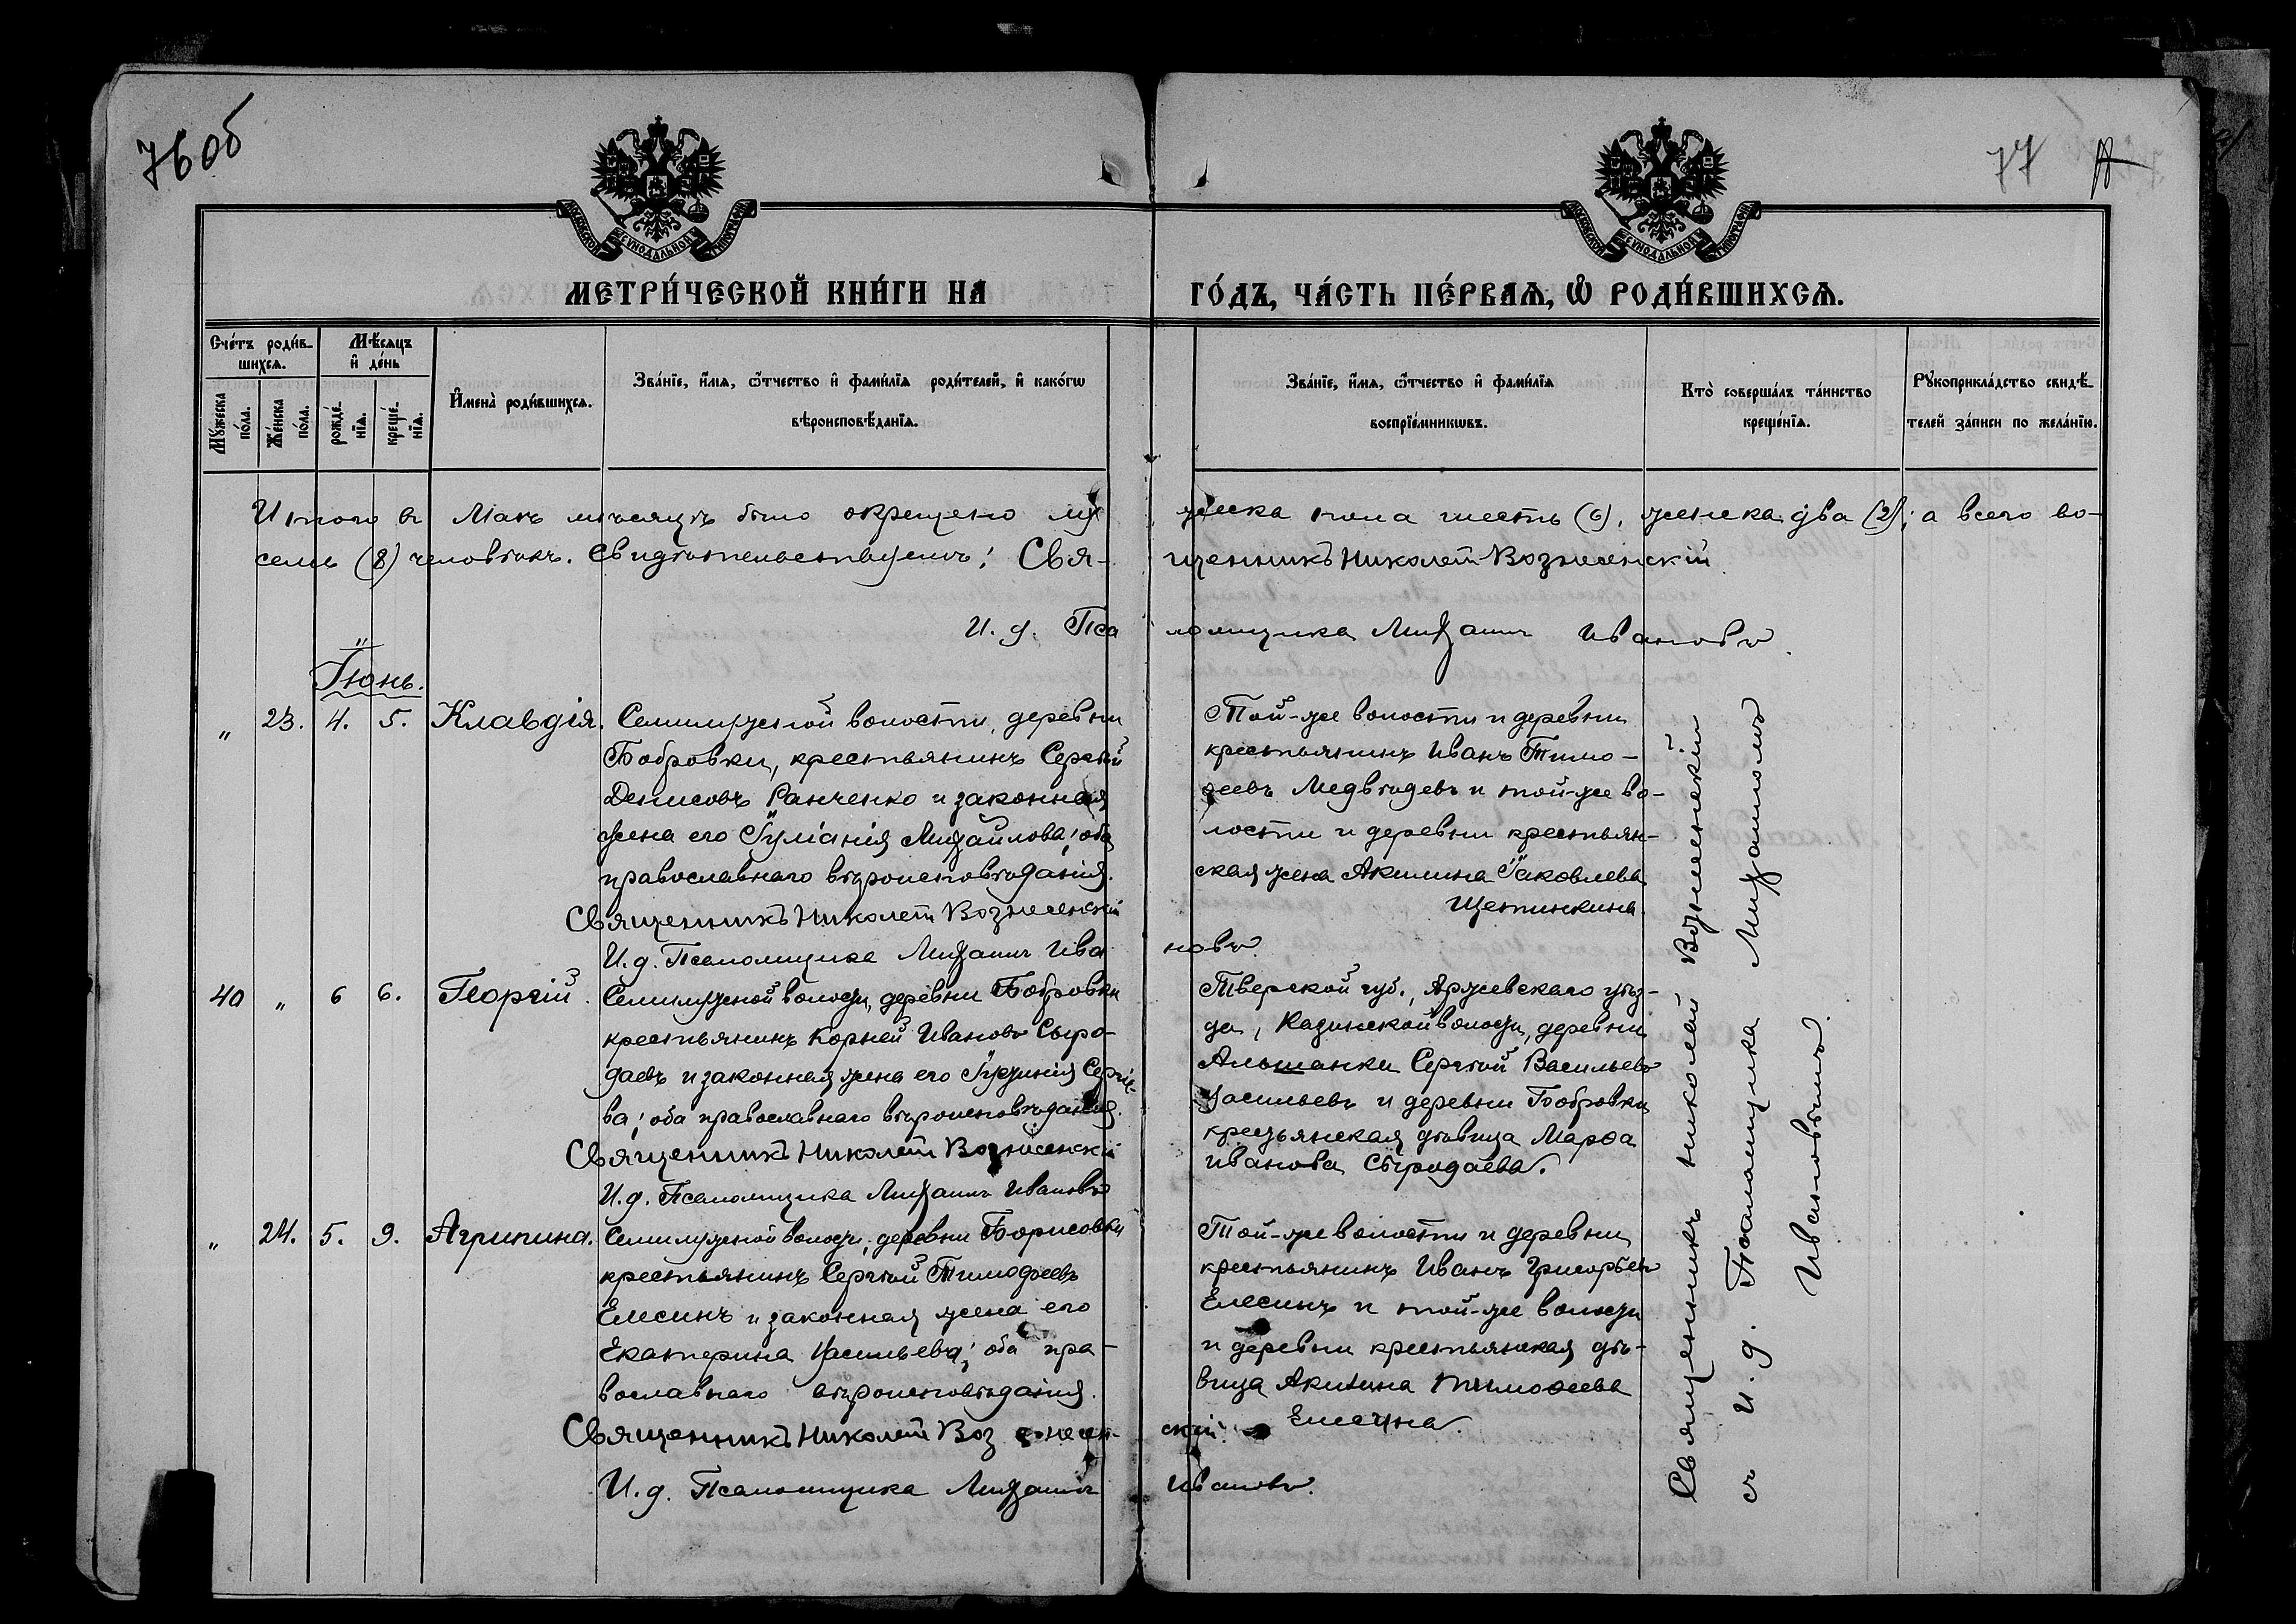 76об
77
МОСКОВСКОЙ СѴНОДАЛЬНОЙ ТИПОГРАФІИ
МОСКОВСКОЙ СѴНОДАЛЬНОЙ ТИПОГРАФІИ
МЕТРИ́ЧЕСКОЙ КНИ́ГИ НА ГО́ДЪ, ЧА́СТЬ ПЕ́РВАѦ, Ѽ РОДИ́ВШИХСѦ.
Сче́тъ роди́в-
шихсѧ.
Мѣ́сѧцъ
и҆ де́нь
Мꙋ́жеска
по́ла.
Же́нска
по́ла.
рожде́-
нїѧ.
креще́-
нїѧ.
И҆мена̀ роди́вшихсѧ.
Зва́нїе, и҆́мѧ, ѻ҆́тчество и҆ фами́лїѧ роди́телей, и҆ како́гѡ
вѣроисповѣ́данїѧ.
Зва́нїе, и҆́мѧ, ѻ҆́тчество и҆ фами́лїѧ
воспрїе́мникѡвъ.
Кто̀ соверша́лъ та́инство
креще́нїѧ.
Рꙋкоприкла́дство свидѣ́-
телей за́писи по жела́нїю.
Итого въ Маѣ мѣсяцѣ было окрещено мужеска пола шесть (6), женска два (2); а всего во-
семь (8) человѣкъ. Свидѣтельствуемъ: Священникъ Николай Вознесенскій
И. д. Псаломщика Михаилъ Ивановъ.
Іюнь.
" 23. 4. 5. Клавдія.
Семилужной волости, деревни
Бобровки, крестьянинъ Сергѣй
Денисовъ Ранченко и законная
жена его Іуліанія Михайлова; оба
православнаго вѣроисповѣданія.
Той-же волости и деревни
крестьянинъ Иванъ Тимо-
ѳеевъ Медвѣдевъ и той-же во-
лости и деревни крестьян-
ская жена Акилина Іаковлева
Щепинкина.
Священникъ Николай Вознесенскій
И. д. Псаломщика Михаилъ Ивановъ.
40 " 6 6. Георгій.
Семилужной волости, деревни Бобровки
крестьянинъ Корней Ивановъ Сыро-
даевъ и законная жена его Іустинія Сергіе-
ва; оба православнаго вѣроисповѣданія.
Тверской губ., Аржевскаго уѣз-
да, Казинской волости, деревни
Альшанки Сергѣй Васильевъ
Васильевъ и деревни Бобровки
крестьянская дѣвица Марѳа
Иванова Сыродаева.
Священникъ Николай Вознесенскій
И. д. Псаломщика Михаилъ Ивановъ
" 24. 5. 9. Агрипина.
Семилужной волости, деревни Борисовки
крестьянинъ Сергѣй Тимоѳеевъ
Елесинъ и законная жена его
Екатерина Васильева; оба пра-
вославнаго вѣроисповѣданія.
Той-же волости и деревни
крестьянинъ Иванъ Григорьевъ
Елесинъ и той-же волости
и деревни крестьянская дѣ-
вица Акилина Тимоѳеева
Елесина.
Священникъ Николай Вознесенскій.
И. д. Псаломщика Михаилъ Ивановъ.
Священникъ Николай Вознесенскій
съ И. д. Псаломщика Михаиломъ
Ивановымъ.